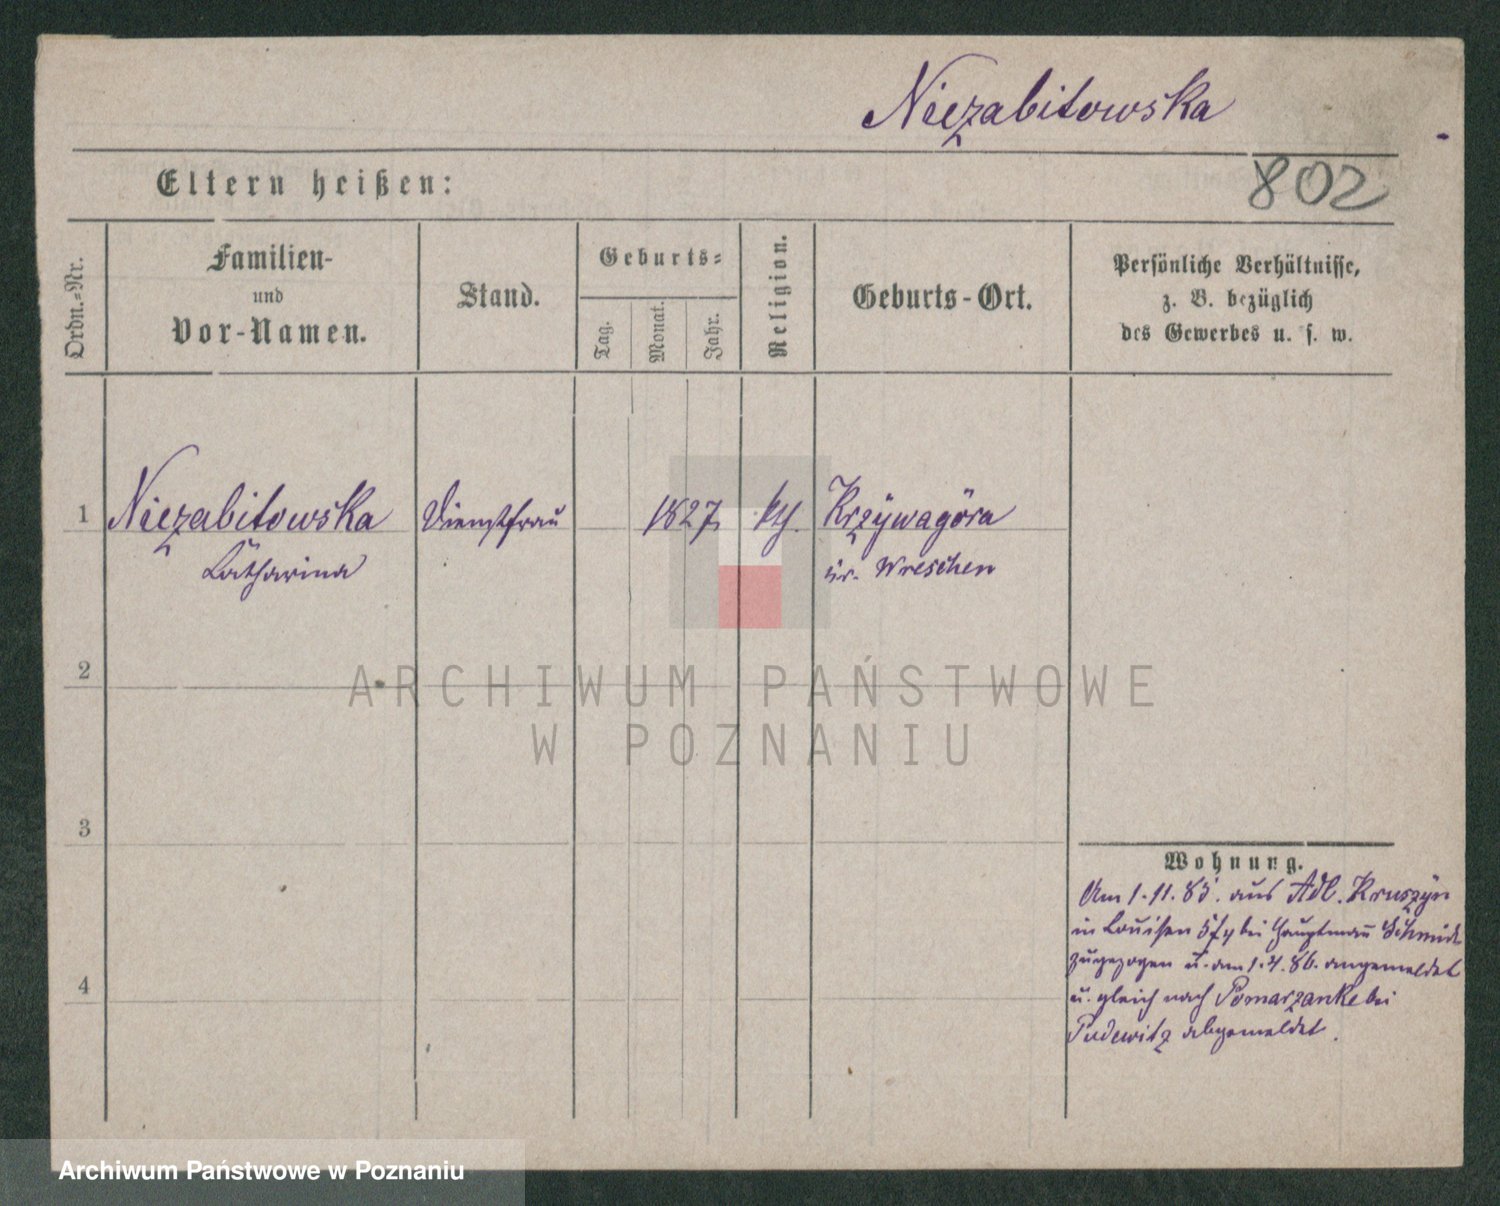 Niezabitowska
802
Eltern heißen:
Ordn.-Nr.
Familien-
und
Vor-Namen.
Stand.
Geburts-
Tag.
Monat.
Jahr.
Religion.
Geburts-Ort.
Persönliche Verhältnisse,
z. B. bezüglich
des Gewerbes u. s. w.
1
Niezabitowska
Catharina
Dienstfrau
1827
kth.
Krzywagóra
kr. Wreschen
2
3
4
Wohnung.
Am 1.11.85. aus Adl. Kruszyn
in Louisen bei Hauptmann Schmidt
zugezogen u. am 1.4.86. angemeldet
u. gleich nach Pomarzanke bei
Pudewitz abgemeldet.
ARCHIWUM PAŃSTWOWE
W POZNANIU
Archiwum Państwowe w Poznaniu